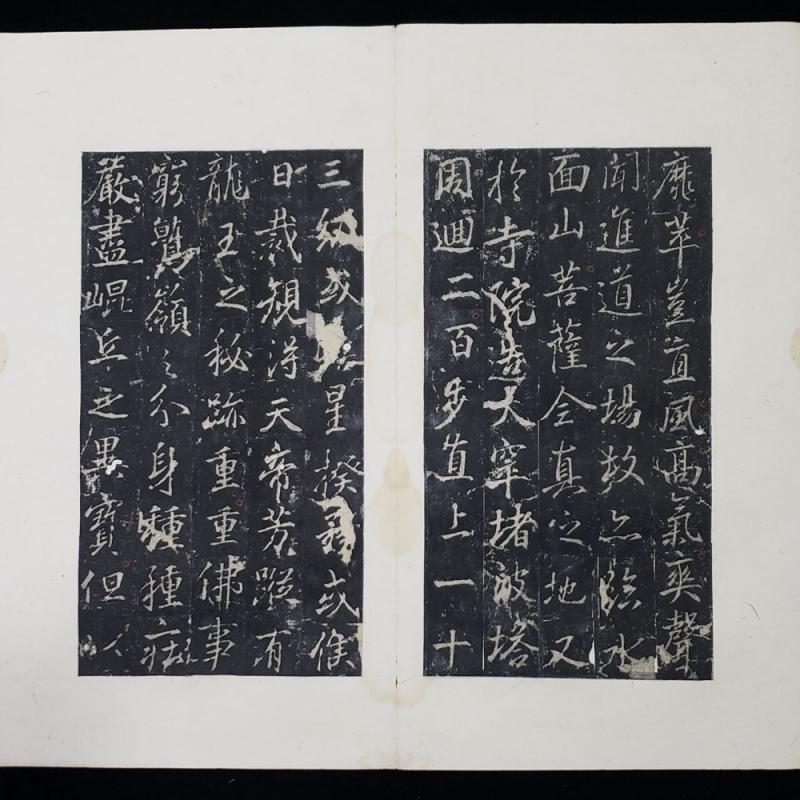 靡萃豈直風高氣爽聲
聞進道之場故亦臨水
面山菩薩全真之地又
於寺院造大窣堵波塔
周迴二百步直上一十
三級或星揆務或候
日裁規得天帝芳蹤有
龍王之秘跡重重佛事
窮鷲嶺之分身種種莊
嚴盡崐丘之異寶但以